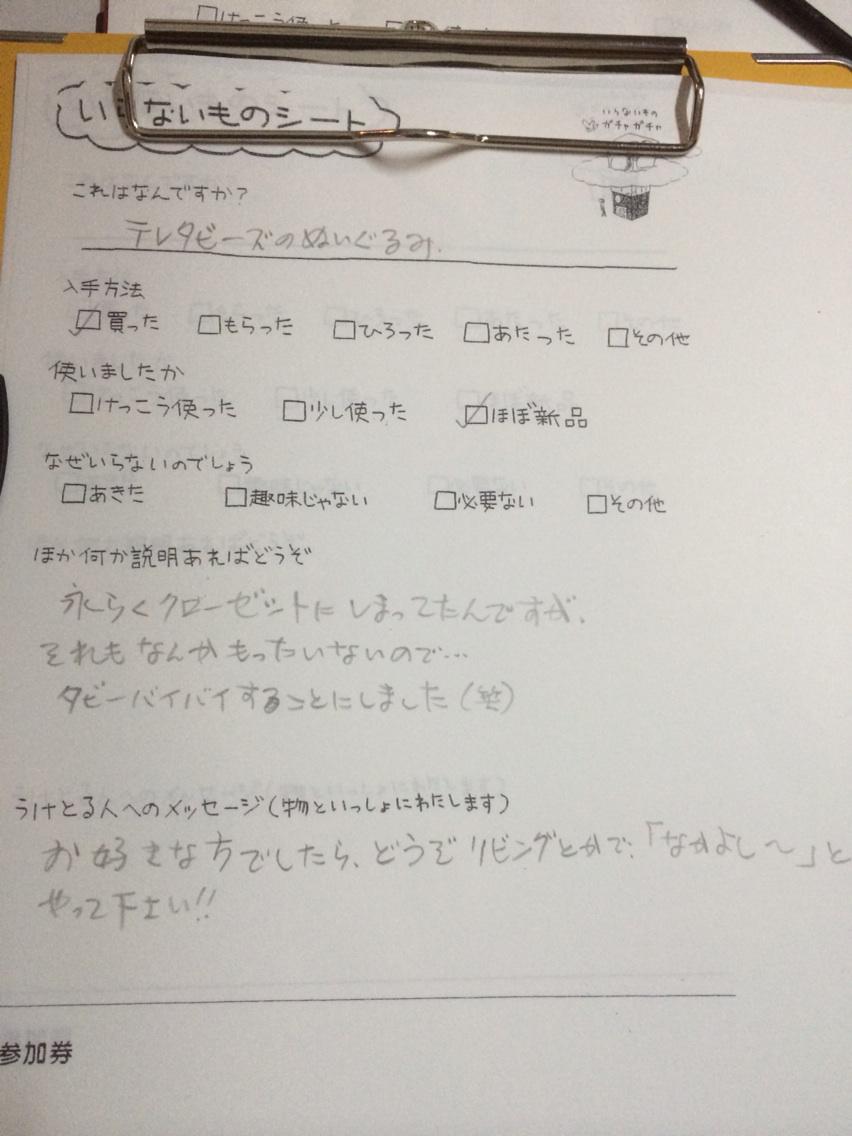 いらないものシート
いらないもの
ガチャガチャ
これはなんですか?
テレタビーズのぬいぐるみ.
入手方法
☑買った □もらった □ひろった □あたった □その他
使いましたか
□けっこう使った □少し使った ☑ほぼ新品
なぜいらないのでしょう
□あきた □趣味じゃない □必要ない □その他
ほか何か説明あればどうぞ
永らくクローゼットにしまってたんですが、
それもなんかもったいないので…
タビーバイバイすることにしました(笑)
うけとる人へのメッセージ(物といっしょにわたします)
お好きな方でしたら、どうぞリビングとかで、「なかよし〜」と
やって下さい!!
参加券